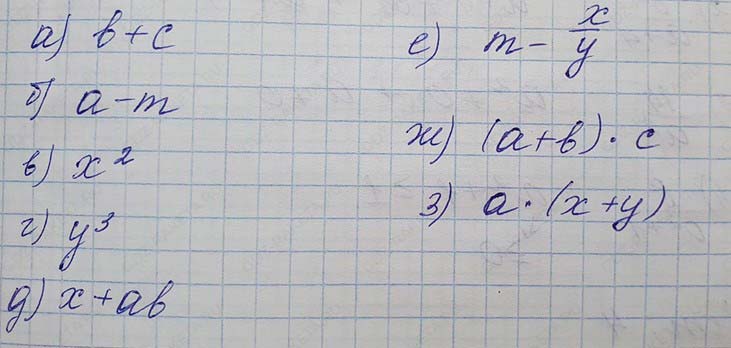 а) b+c
б) a-m
в) x²
г) y³
д) x+ab
е) m - x/y
ж) (a+b)·c
з) a·(x+y)